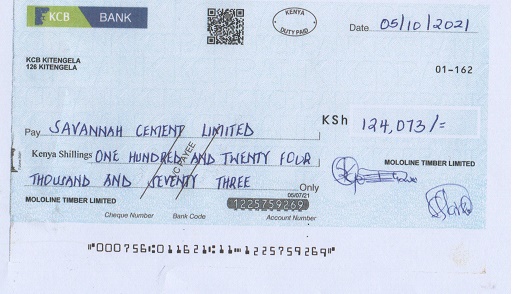 KCB BANK
KENYA
DUTY PAID
Date 05/10/2021
KCB KITENGELA
126 KITENGELA
01-162
Pay SAVANNAH CEMENT LIMITED
KSh 124,073/=
Kenya Shillings ONE HUNDRED AND TWENTY FOUR
THOUSAND AND SEVENTY THREE Only
A/C PAYEE
MOLOLINE TIMBER LIMITED
05/07/21
MOLOLINE TIMBER LIMITED
1225759269
Cheque Number Bank Code Account Number
"000756:011621:11=1225759269"